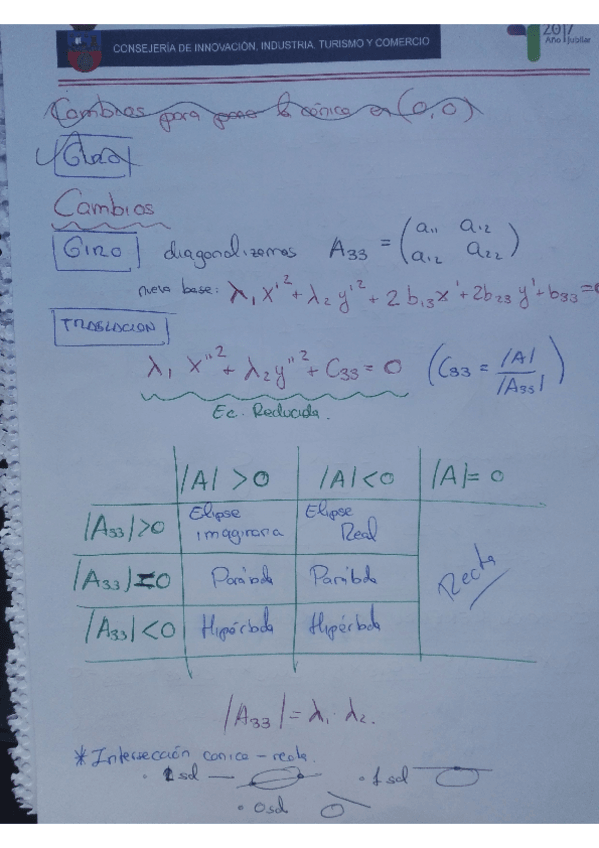 CONSEJERÍA DE INNOVACIÓN, INDUSTRIA, TURISMO Y COMERCIO
2017
Año Jubilar
Cambios para poner la cónica en (0,0)
Cambios
GIRO diagonalizamos A33 = (a11 a12
a12 a22)
nueva base: λ1 x'² + λ2 y'² + 2 b13 x' + 2 b23 y' + b33 = 0
TRASLACION
λ1 x''² + λ2 y''² + C33 = 0 (C33 = |A| / |A33|)
Ec. Reducida.
|A| > 0 |A| < 0 |A| = 0
|A33| > 0 Elipse imaginaria Elipse Real Recta
|A33| = 0 Parábola Parábola
|A33| < 0 Hipérbola Hipérbola
|A33| = λ1 · λ2.
* Intersección cónica - recta.
· 2 sol · 1 sol
· 0 sol